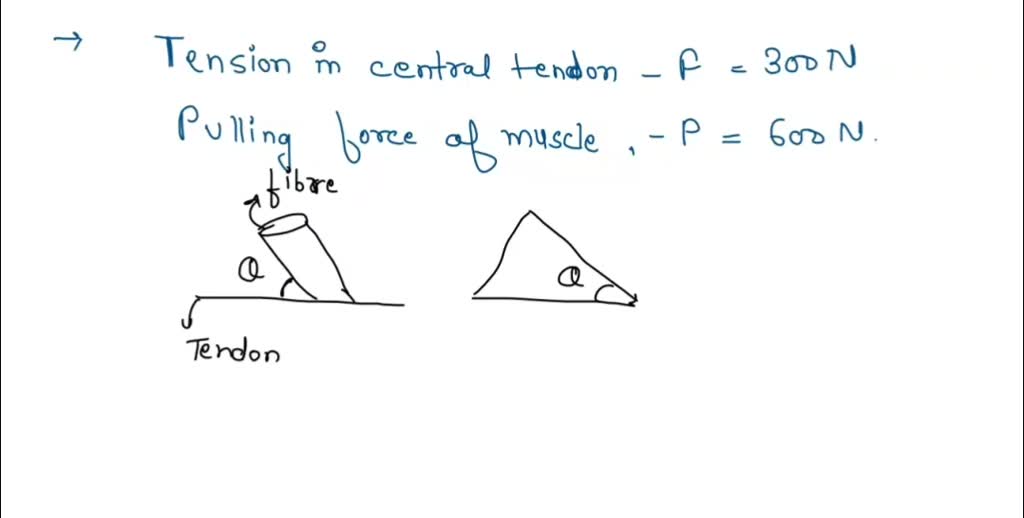 → Tension in central tendon - F = 300 N
Pulling force of muscle, - P = 600 N.
fibre
θ
θ
Tendon